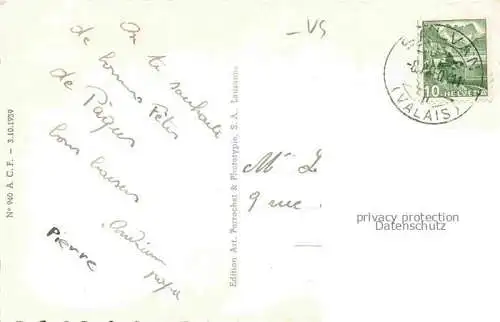 On te souhaite
de bonnes Fêtes
de Pâques
bons baisers
papa
Pierre
Nº 940 A. C. F. — 3.10.1939
Edition Art. Perrochet & Phototypie, S. A. Lausanne
—VS
VAN
(VALAIS)
10 HELVETIA
Mr L
9 rue
privacy protection
Datenschutz